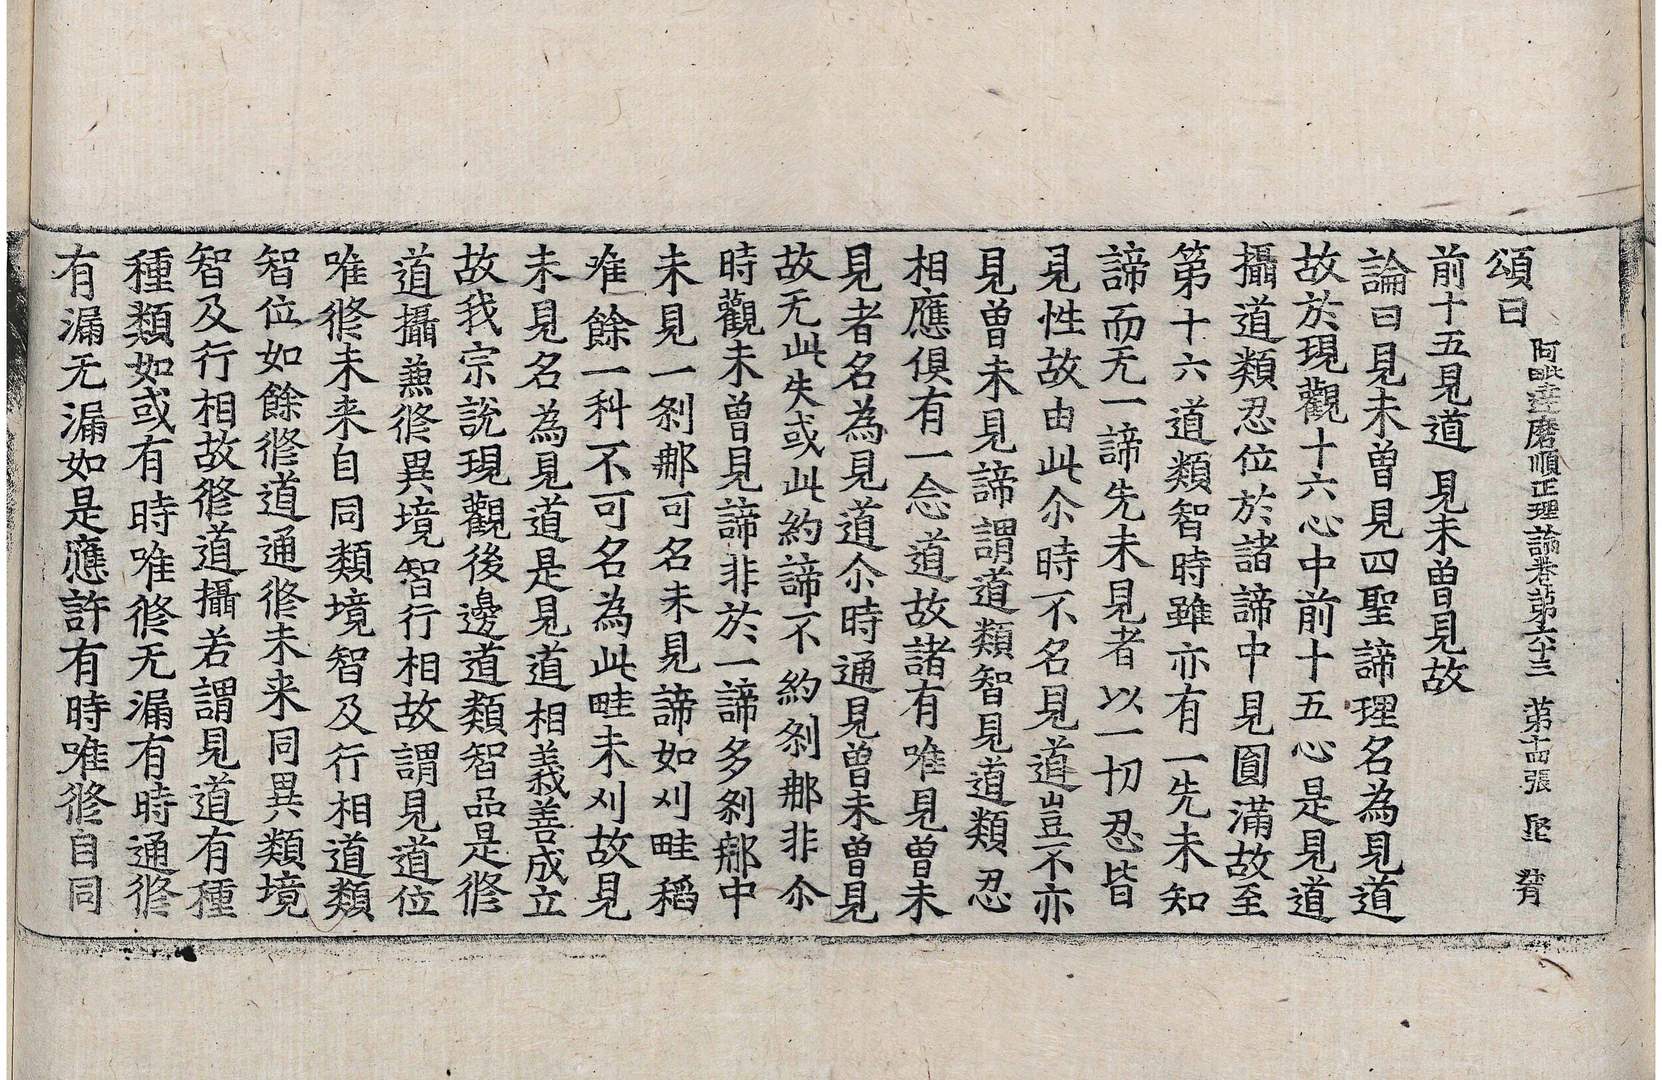 阿毗達磨順正理論卷第六十三　第十四張　坚
頌曰
前十五見道　見未曾見故
論曰見未曾見四聖諦理名為見道
故於現觀十六心中前十五心是見道
攝道類忍位於諸諦中見圓滿故至
第十六道類智時雖亦有一先未知
諦而无一諦先未見者以一切忍皆
見性故由此尒時不名見道豈不亦
見曾未見諦謂道類智見道類忍
相應俱有一念道故諸有唯見曾未
見者名為見道尒時通見曾未曾見
故无此失或此約諦不約剎那非尒
時觀未曾見諦非於一諦多剎那中
未見一剎那可名未見諦如刈畦稻
唯餘一科不可名為此畦未刈故見
未見名為見道是見道相義善成立
故我宗說現觀後邊道類智品是修
道攝兼修異境智行相故謂見道位
唯修未来自同類境智及行相道類
智位如餘修道通修未来同異類境
智及行相故修道攝若謂見道有種
種類如或有時唯修无漏有時通修
有漏无漏如是應許有時唯修自同